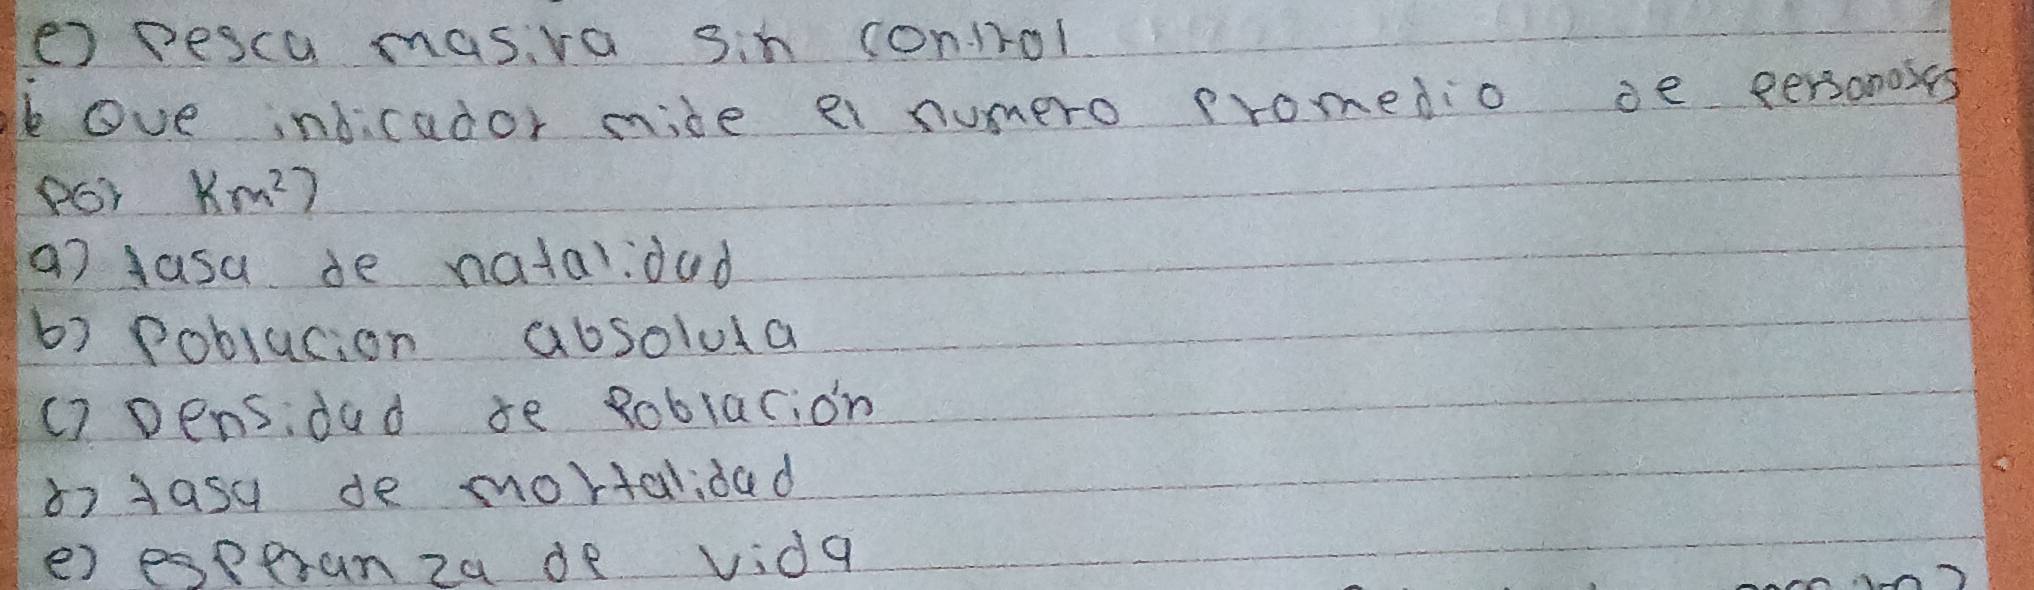 e) Pesca masiva sin control
6 Que indicador mide el numero promedio de personas
por Km²?
a) tasa de natalidad
b) Poblacion absoluta
c) Densidad de Población
d) tasa de mortalidad
e) esperanza de vida